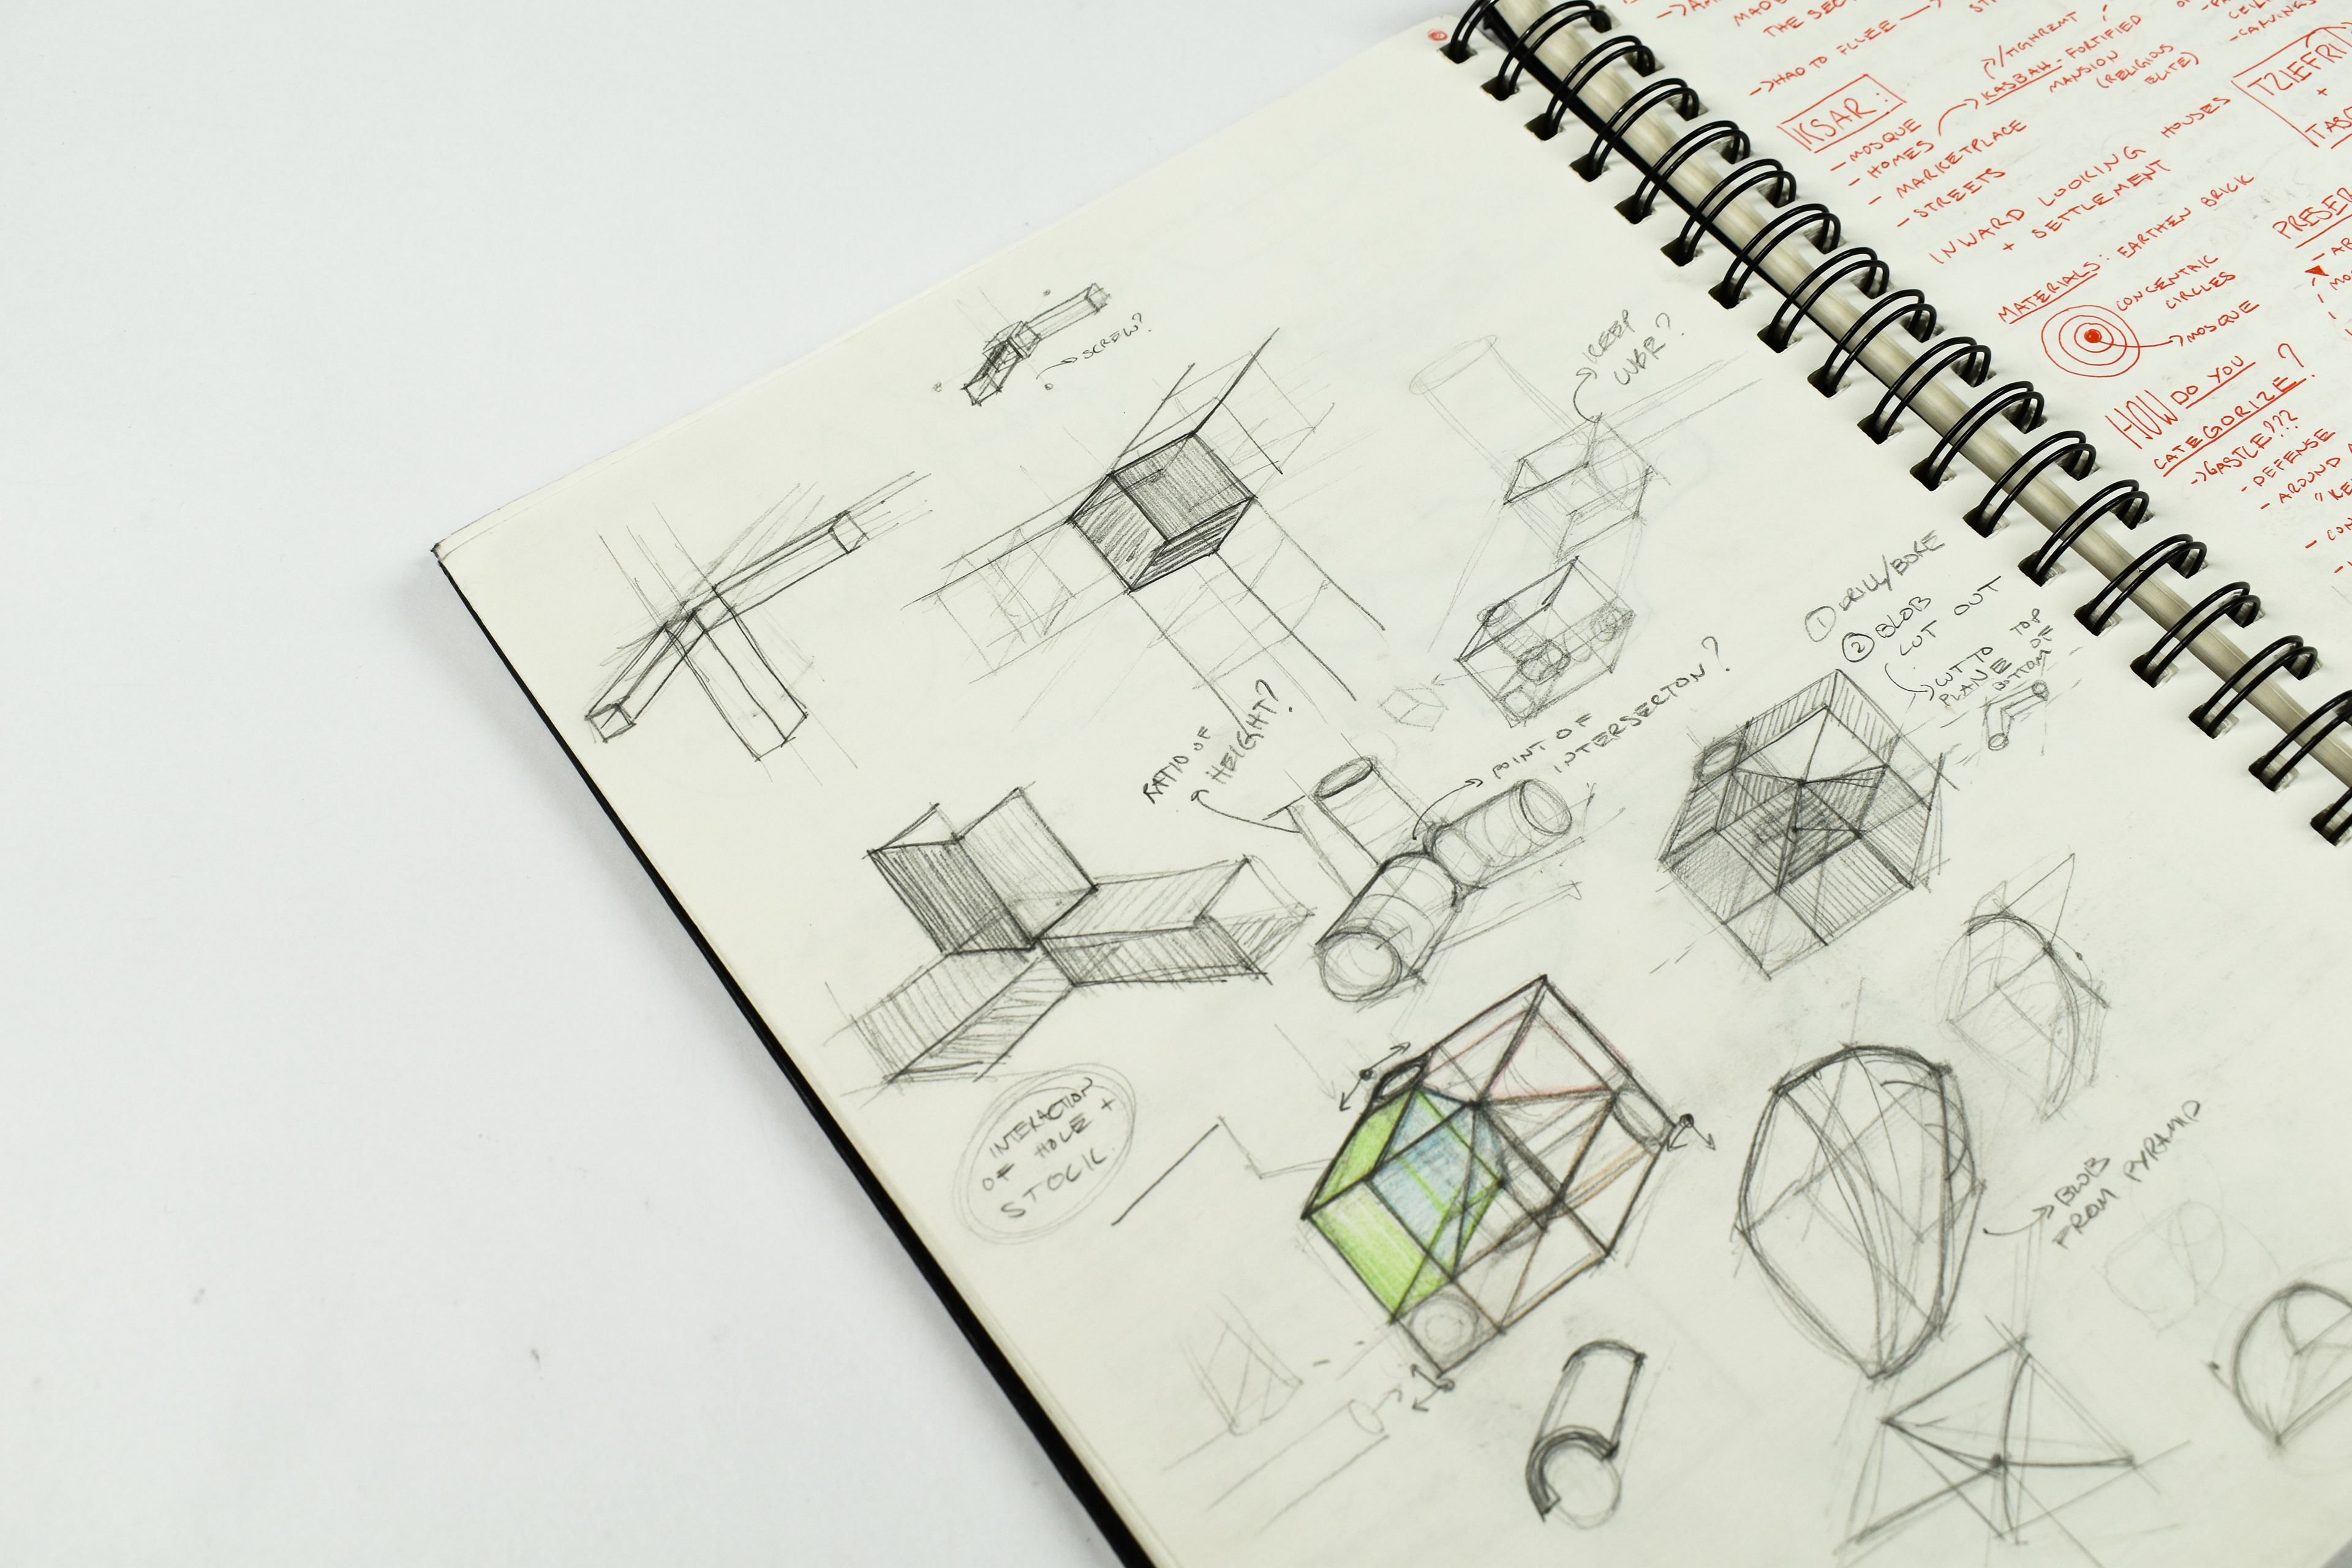 →SCREW?
→KEEP
WBR?
RATIO OF
HEIGHT?
→POINT OF
INTERSECTON?
① DRILL/BORE
② BLOB
CUT OUT
→CUT TO TOP
PLANE OF
BOTTOM
INTERACTION
OF HOLE +
STOCK.
→BLOB
FROM PYRAMID
MAD
THE SEC
→HAD TO FLEE →
KSAR:
- MOSQUE
- HOMES
- MARKETPLACE
- STREETS
→KASBAH - FORTIFIED
MANSION
(RELIGIOUS
ELITE)
CEIL
-CARVINGS
TZIEFRI
+
INWARD LOOKING HOUSES
+ SETTLEMENT
MATERIALS: EARTHEN BRICK
CONCENTRIC
CIRCLES
→MOSQUE
HOW DO YOU
CATEGORIZE?
→CASTLE???
- DEFENSE
- AROUND
PRESER